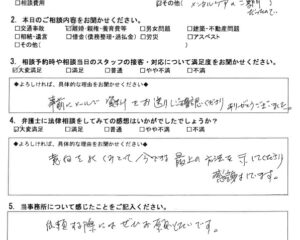 □相談費用 ☑その他(メンタルケアのご案内
2. 本日のご相談内容をお聞かせください。
□交通事故 ☑離婚・親権・養育費等 □男女問題 □建築・不動産問題
□相続・遺言 □借金(債務整理・過払金) □労災 □アスベスト
□その他( )
3. 相談予約時や相談当日のスタッフの接客・対応について満足度をお聞かせください。
☑大変満足 □満足 □普通 □やや不満 □不満
◆よろしければ、具体的な理由をお聞かせください◆
事前にメールで資料をお送りし確認くださり ありがとうございました。
4. 弁護士に法律相談をしてみての感想はいかがでしたでしょうか?
☑大変満足 □満足 □普通 □やや不満 □不満
◆よろしければ、具体的な理由をお聞かせください◆
最上の方法を示してくださり
感謝しています。
5. 当事務所について感じたことをご記入ください。
依頼する際にはぜひお願いしたいです。